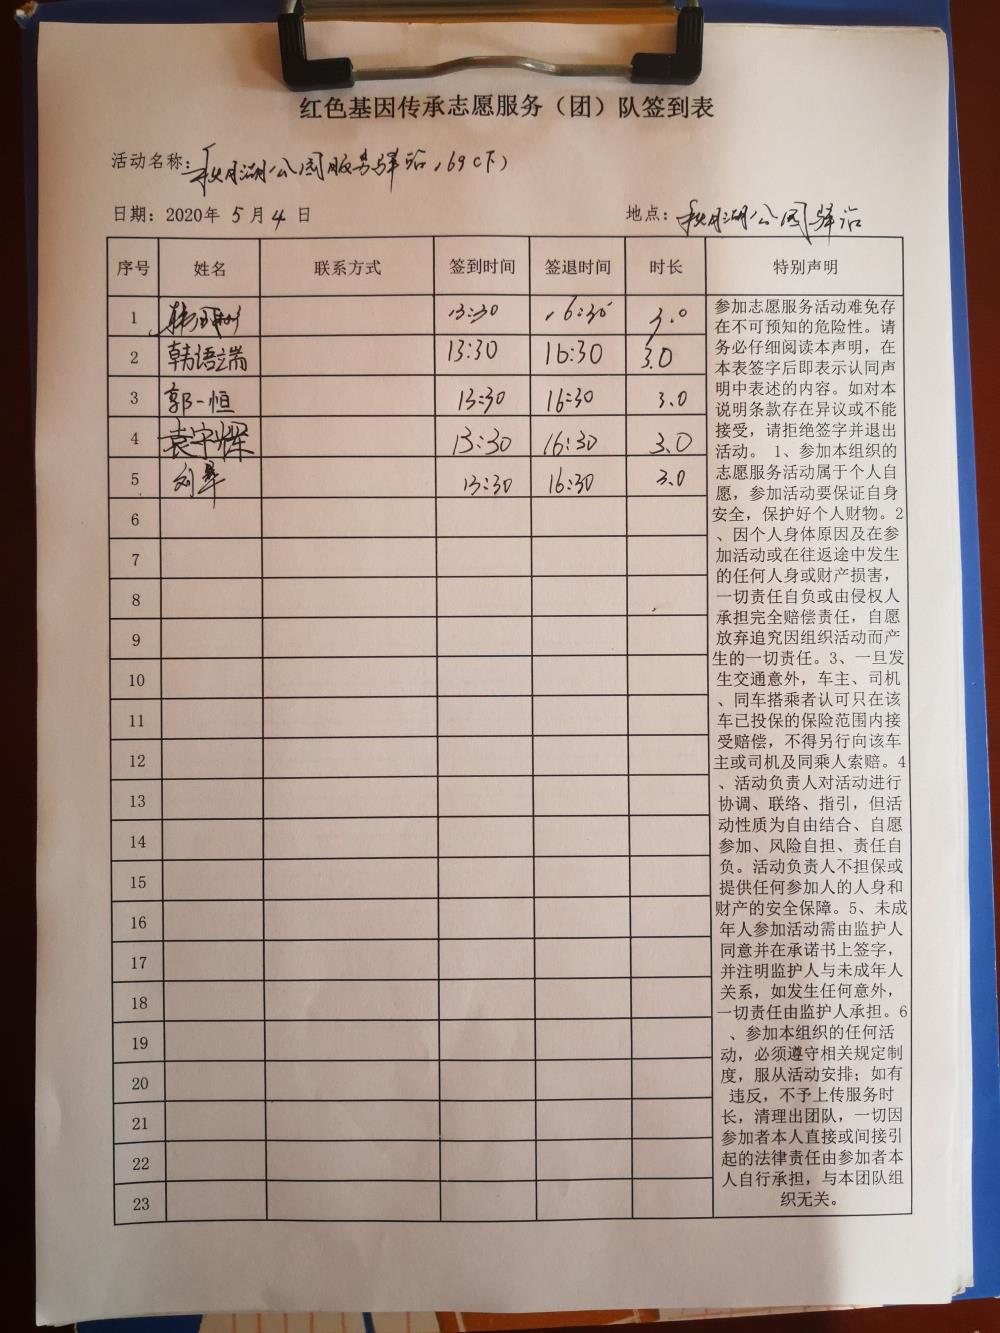 红色基因传承志愿服务（团）队签到表
活动名称：秋月湖公园服务驿站169（下）
日期：2020年 5 月 4 日 地点：秋月湖公园驿站
序号 姓名 联系方式 签到时间 签退时间 时长 特别声明
1 韩 13:30 16:30 3.0
2 韩语端 13:30 16:30 3.0
3 郭一恒 13:30 16:30 3.0
4 袁宇辉 13:30 16:30 3.0
5 刘 13:30 16:30 3.0
6
7
8
9
10
11
12
13
14
15
16
17
18
19
20
21
22
23
参加志愿服务活动难免存
在不可预知的危险性。请
务必仔细阅读本声明，在
本表签字后即表示认同声
明中表述的内容。如对本
说明条款存在异议或不能
接受，请拒绝签字并退出
活动。 1、参加本组织的
志愿服务活动属于个人自
愿，参加活动要保证自身
安全，保护好个人财物。2
、因个人身体原因及在参
加活动或在往返途中发生
的任何人身或财产损害，
一切责任自负或由侵权人
承担完全赔偿责任，自愿
放弃追究因组织活动而产
生的一切责任。3、一旦发
生交通意外，车主、司机
、同车搭乘者认可只在该
车已投保的保险范围内接
受赔偿，不得另行向该车
主或司机及同乘人索赔。4
、活动负责人对活动进行
协调、联络、指引，但活
动性质为自由结合、自愿
参加、风险自担、责任自
负。活动负责人不担保或
提供任何参加人的人身和
财产的安全保障。5、未成
年人参加活动需由监护人
同意并在承诺书上签字，
并注明监护人与未成年人
关系，如发生任何意外，
一切责任由监护人承担。6
、参加本组织的任何活
动，必须遵守相关规定制
度，服从活动安排；如有
违反，不予上传服务时
长，清理出团队，一切因
参加者本人直接或间接引
起的法律责任由参加者本
人自行承担，与本团队组
织无关。